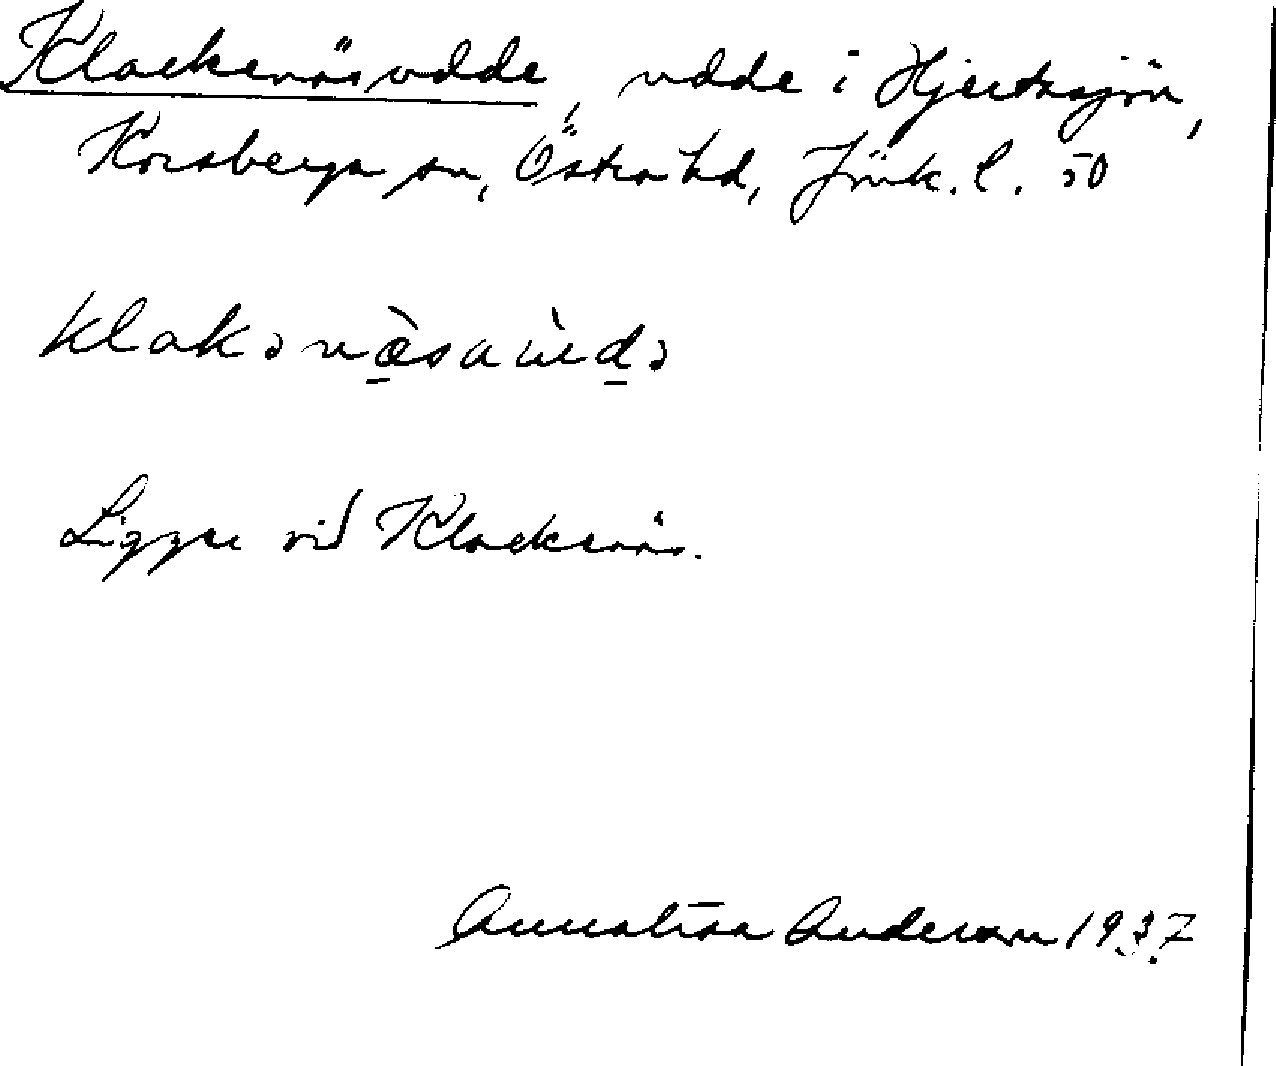 Klackenäsudde, udde i Hjertasjön,
Korsberga sn, Östra hd, Jönk. l. 50
klakɔnæ̀saùdɔ
Ligger vid Klackenäs.
Annalisa Anderson 1937